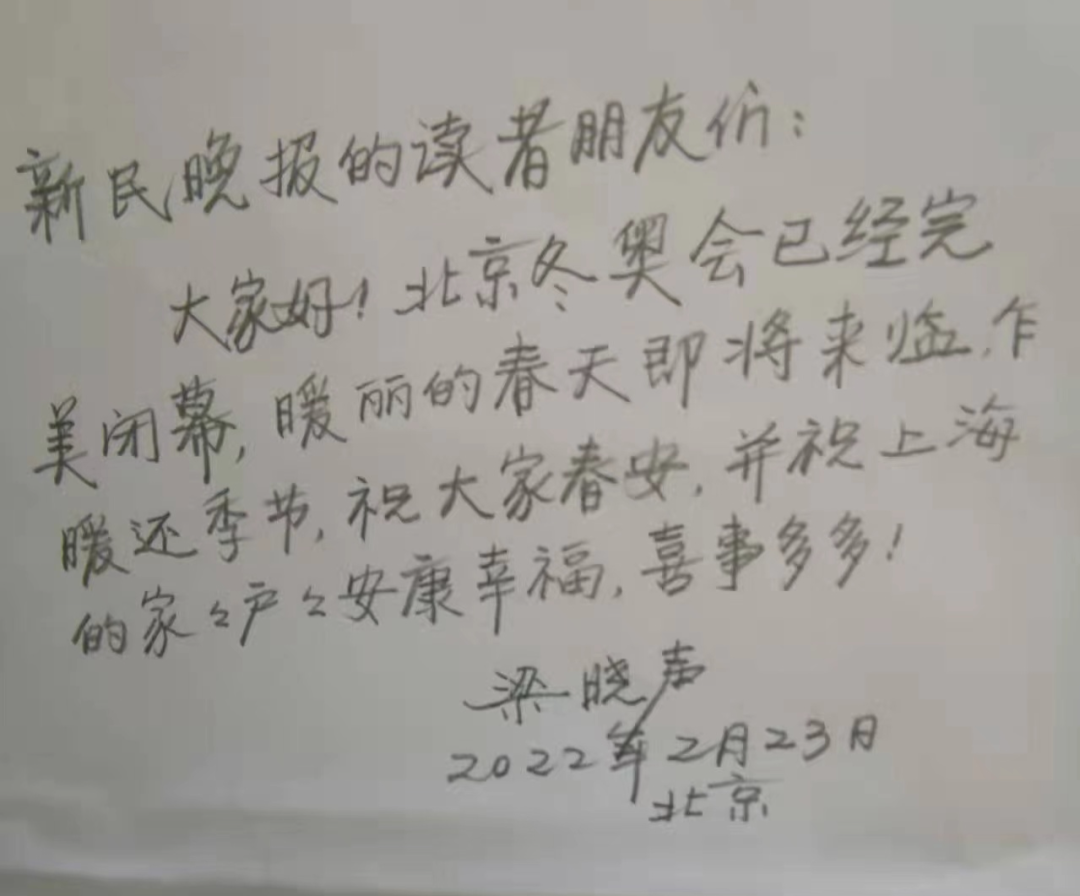 新民晚报的读者朋友们:
大家好!北京冬奥会已经完
美闭幕,暖丽的春天即将来临,乍
暖还季节,祝大家春安,并祝上海
的家々户々安康幸福,喜事多多!
梁晓声
2022年2月23日
北京